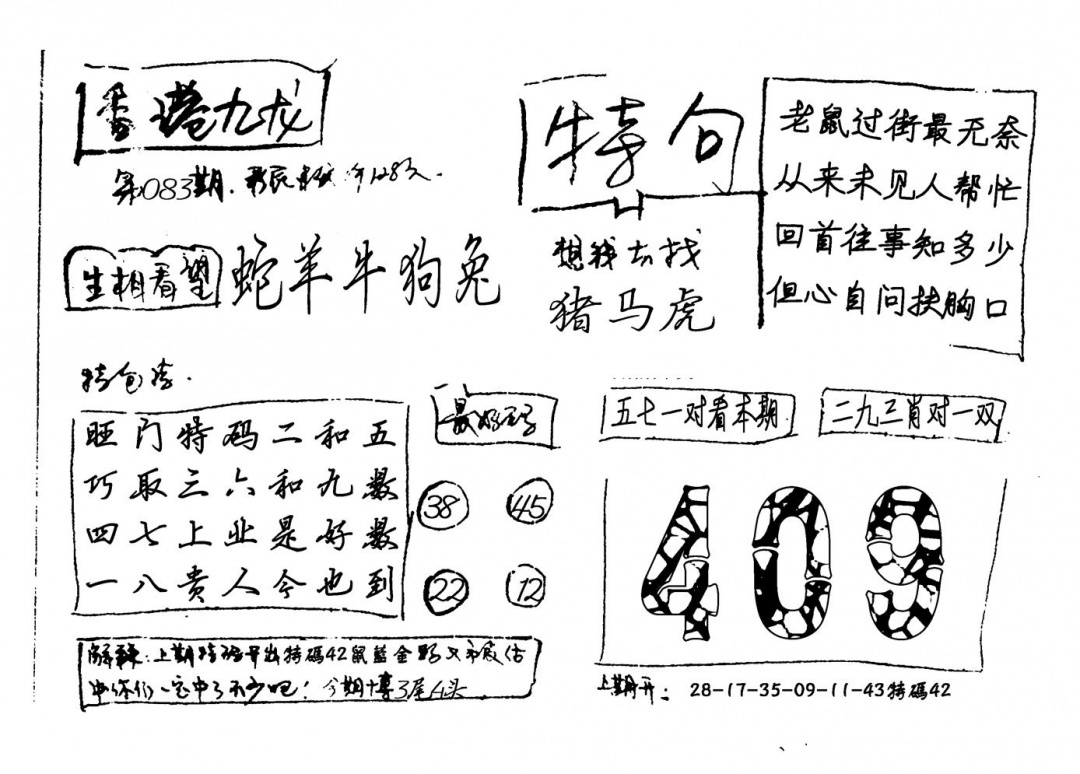 香港九龙
第083期.
生相看望
蛇羊牛狗兔
特句
想我去找
猪马虎
老鼠过街最无奈
从来未见人帮忙
回首往事知多少
但心自问扶胸口
特包
旺门特码二和五
巧取三六和九数
四七上业是好数
一八贵人今也到
最好
38
45
22
12
五七一对看本期
二九三肖对一双
409
解:上期特码早出特碼42鼠蓝金
中你们一定中了不少吧!今期博3尾4头
上期开:28-17-35-09-11-43特碼42